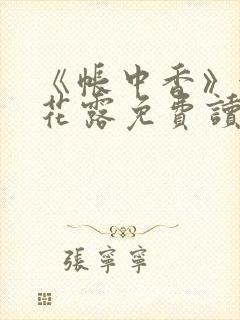 《帳中香》
花露免費讀
張寧寧